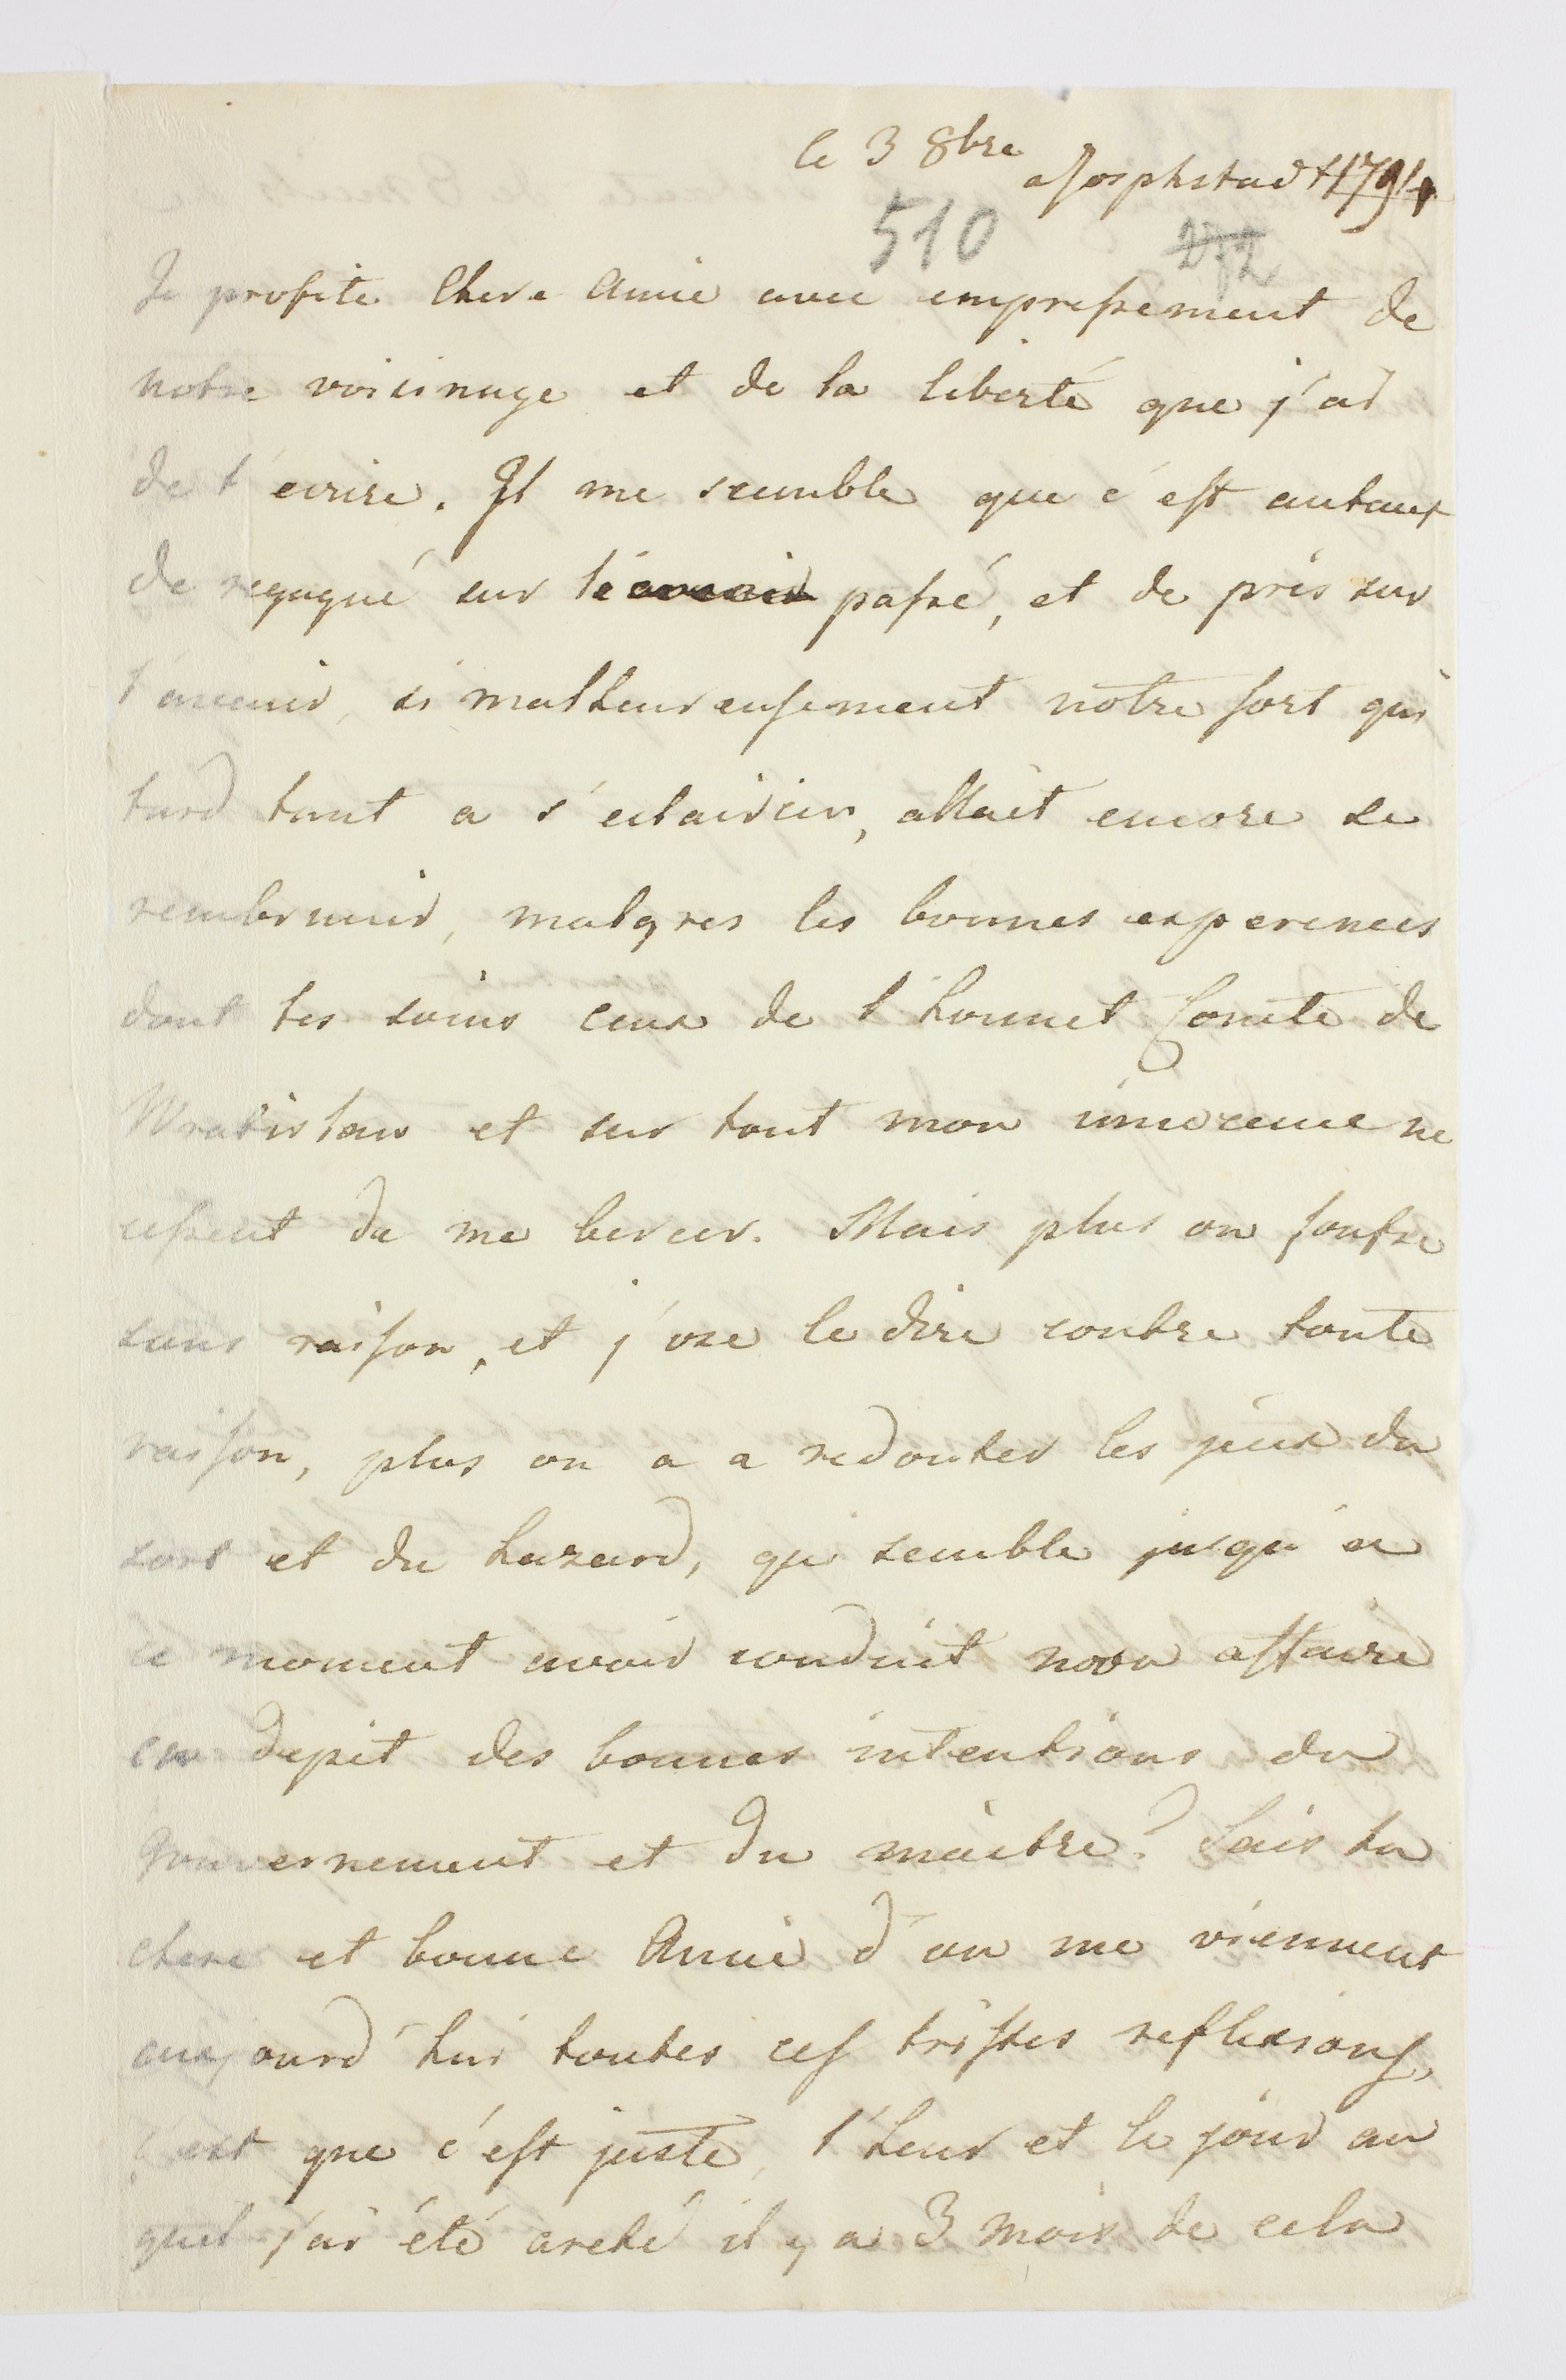 le 3 8bre
a Josphstadt 1794
510
Je profite Chere Amie avec empressement de
notre voisinage et de la liberté que j'ai
de t'ecrire. Il me semble que c'est autant
de regagné sur le passé, et de pris sur
l'avenir, si malheureusement notre sort qui
tard tant a s'eclaircir, allait encore se
rembrunir, malgres les bonnes esperences
dont tes soins ceux de l'honnet Comte de
Wratislaw et sur tout mon innocence ne
cessent de me bercer. Mais plus on soufre
sans raison, et j'ose le dire contre toute
raison, plus on a a redouter les jeux du
sort et du hazard, qui semble jusqu'a
ce moment avoir conduit affaire
en depit des bonnes intentions du
gouvernement et du maitre? Sais tu
chere et bonne Amie d'ou me viennent
aujourd'hui toutes ces tristes reflexions,
c'est que c'est juste, l'heur et le jour au
quel j'ai été areté il y a 3 mois de cela